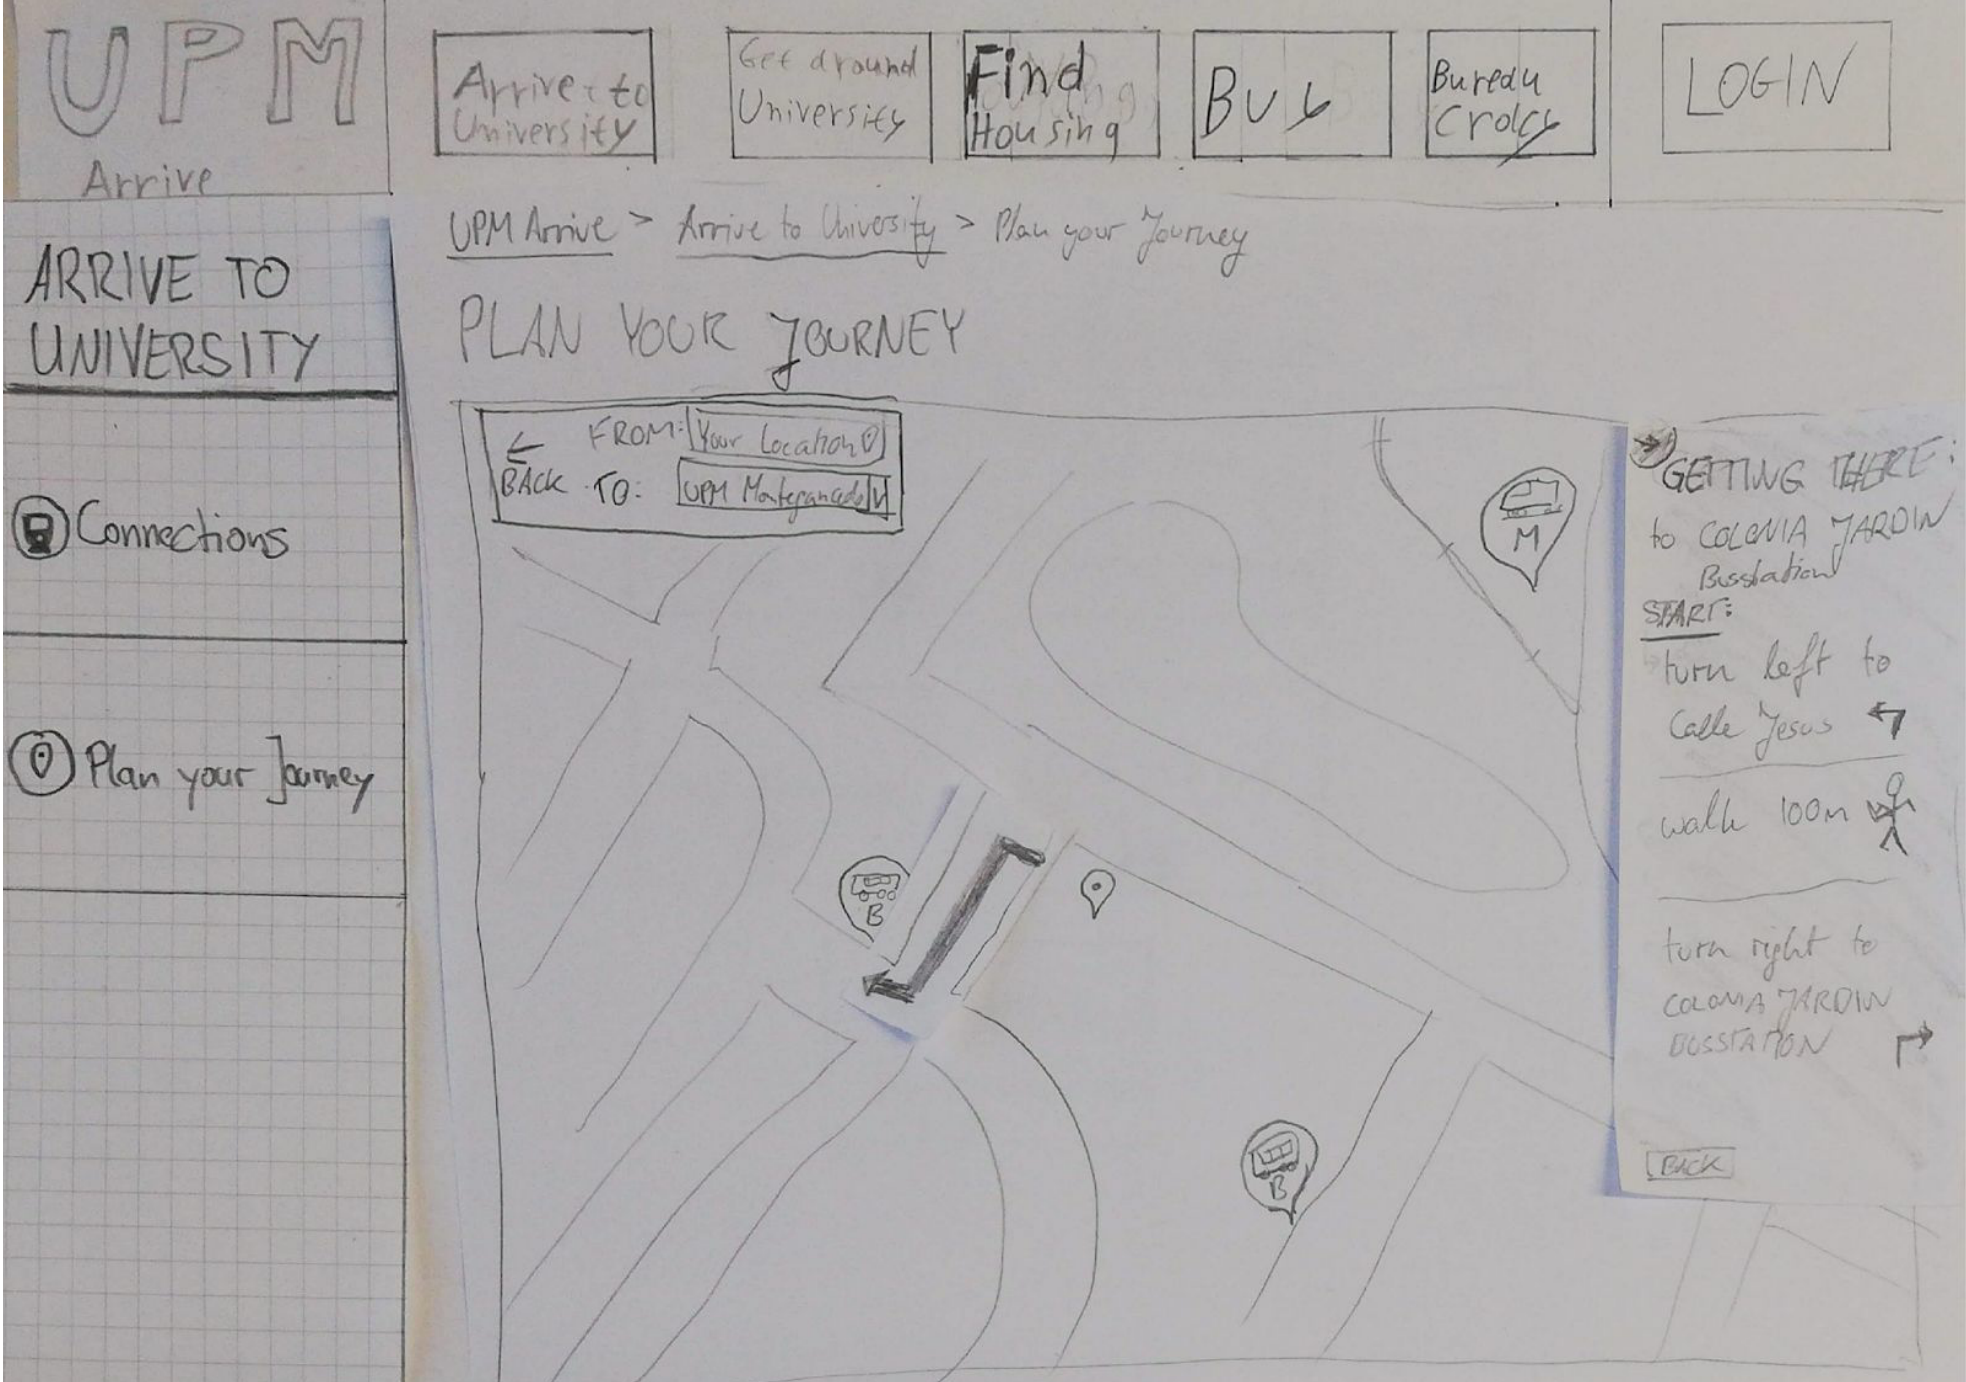 UPM
Arrive
Arrive to
University
Get around
University
Find
Housing
Bus
Bureau
Cracy
LOGIN
UPM Arrive > Arrive to University > Plan your Journey
ARRIVE TO
UNIVERSITY
Connections
Plan your Journey
PLAN YOUR JOURNEY
← FROM: Your Location
BACK TO: UPM Montegancedo V
M
B
B
GETTING THERE:
to COLONIA JARDIN
Busstation
START:
turn left to
Calle Jesus
walk 100m
turn right to
COLONIA JARDIN
BUSSTATION
BACK